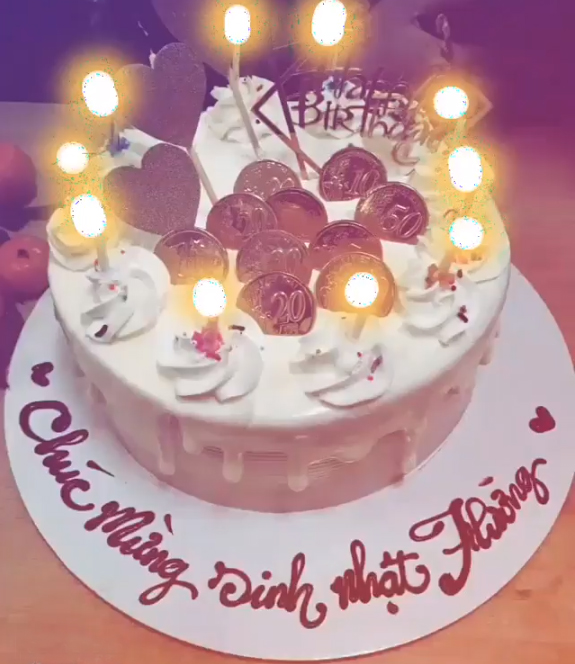 Happy
Birthday
10
50
50
20
Chúc Mừng Sinh nhật